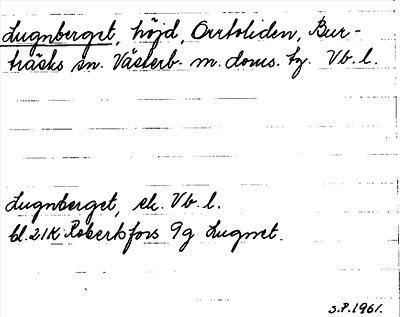 Lugnberget, höjd, Orrtoliden, Bur-
träsks sn. Västerb. m. doms. tg. Vb. l.
Lugnberget, ek. Vb. l.
bl. 21K Robertsfors 9g Lugnet.
S.P. 1961.